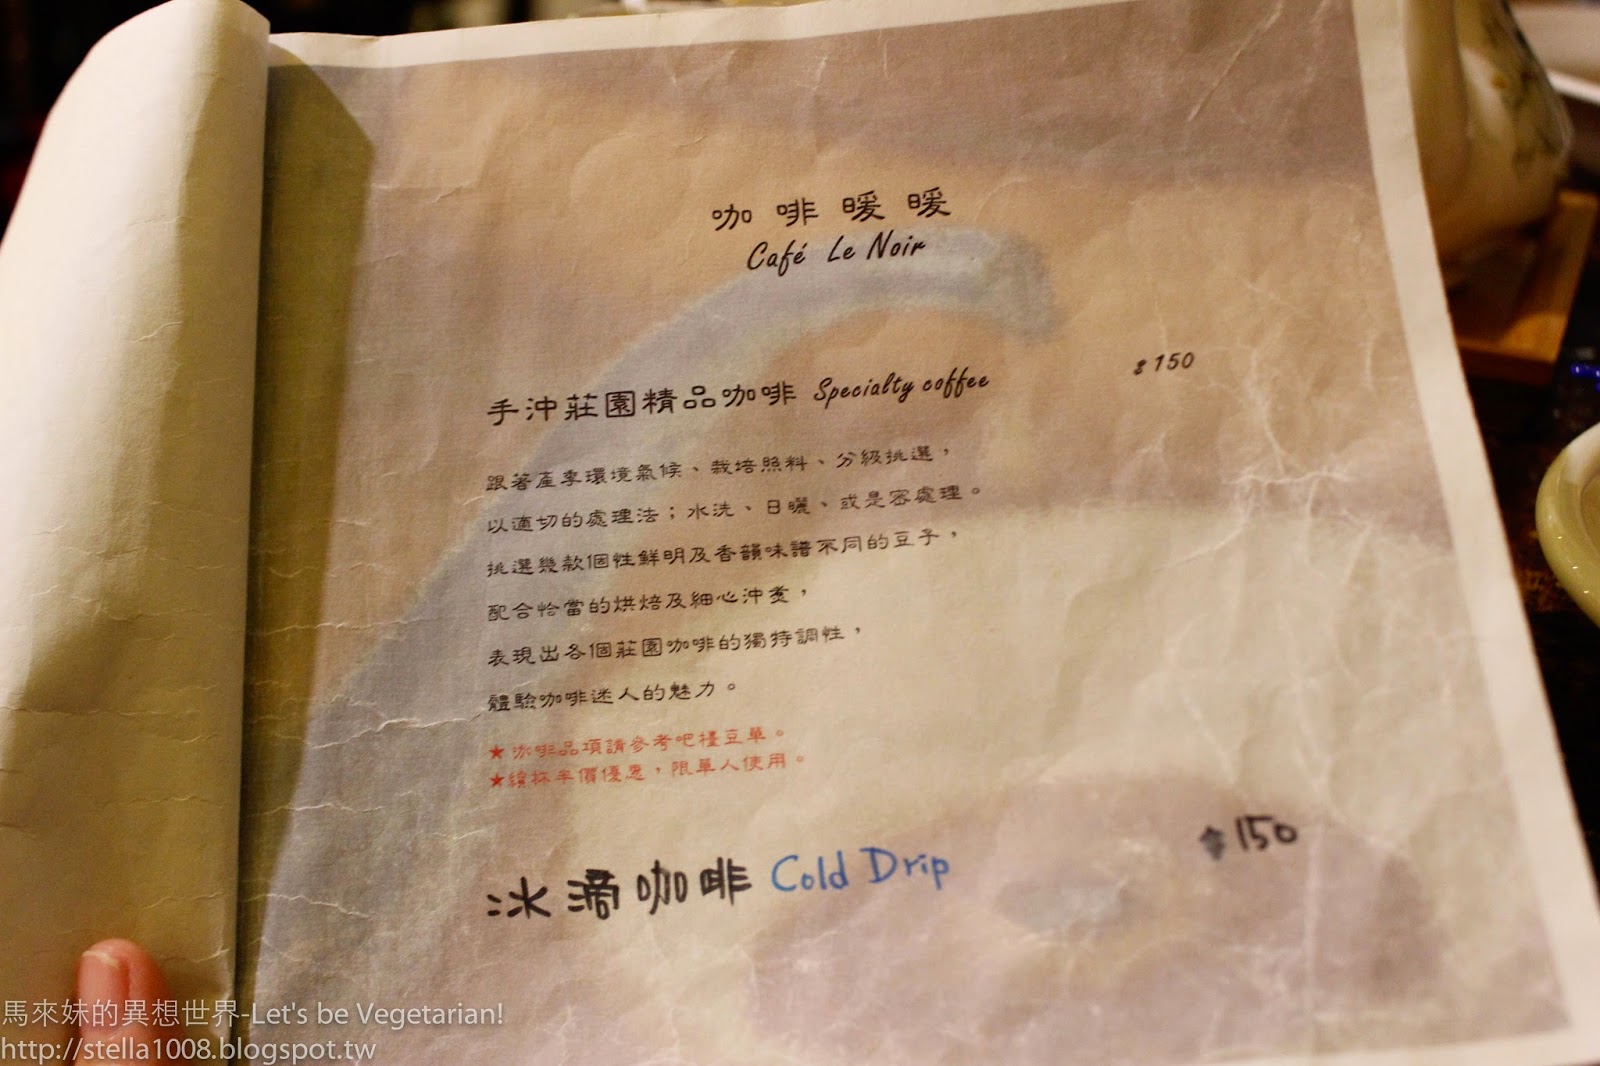 咖啡暖暖
Café Le Noir
手沖莊園精品咖啡 Specialty coffee $150
跟著產季環境氣候、栽培照料、分級挑選，
以適切的處理法；水洗、日曬、或是密處理。
挑選幾款個性鮮明及香韻味譜不同的豆子，
配合恰當的烘焙及細心沖煮，
表現出各個莊園咖啡的獨特調性，
體驗咖啡迷人的魅力。
★咖啡品項請參考吧檯豆單。
★續杯半價優惠，限單人使用。
冰滴咖啡 Cold Drip $150
馬來妹的異想世界-Let's be Vegetarian!
http://stella1008.blogspot.tw